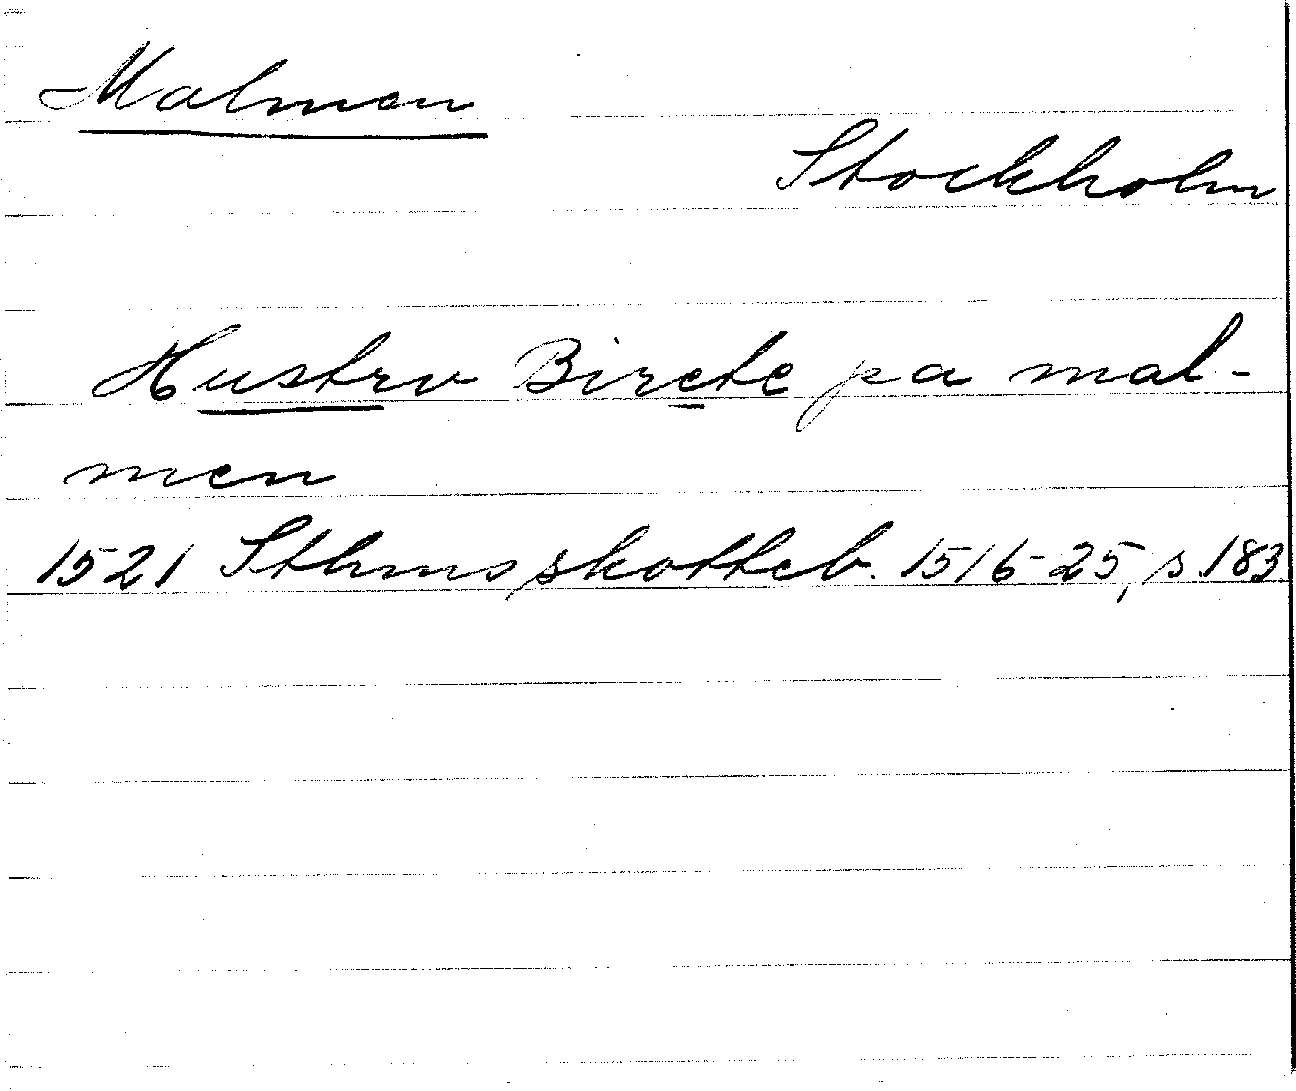 Malmen
Stockholm
Hustrv Birete pa mal-
men
1521 Sthms skotteb. 1516-25, s. 183